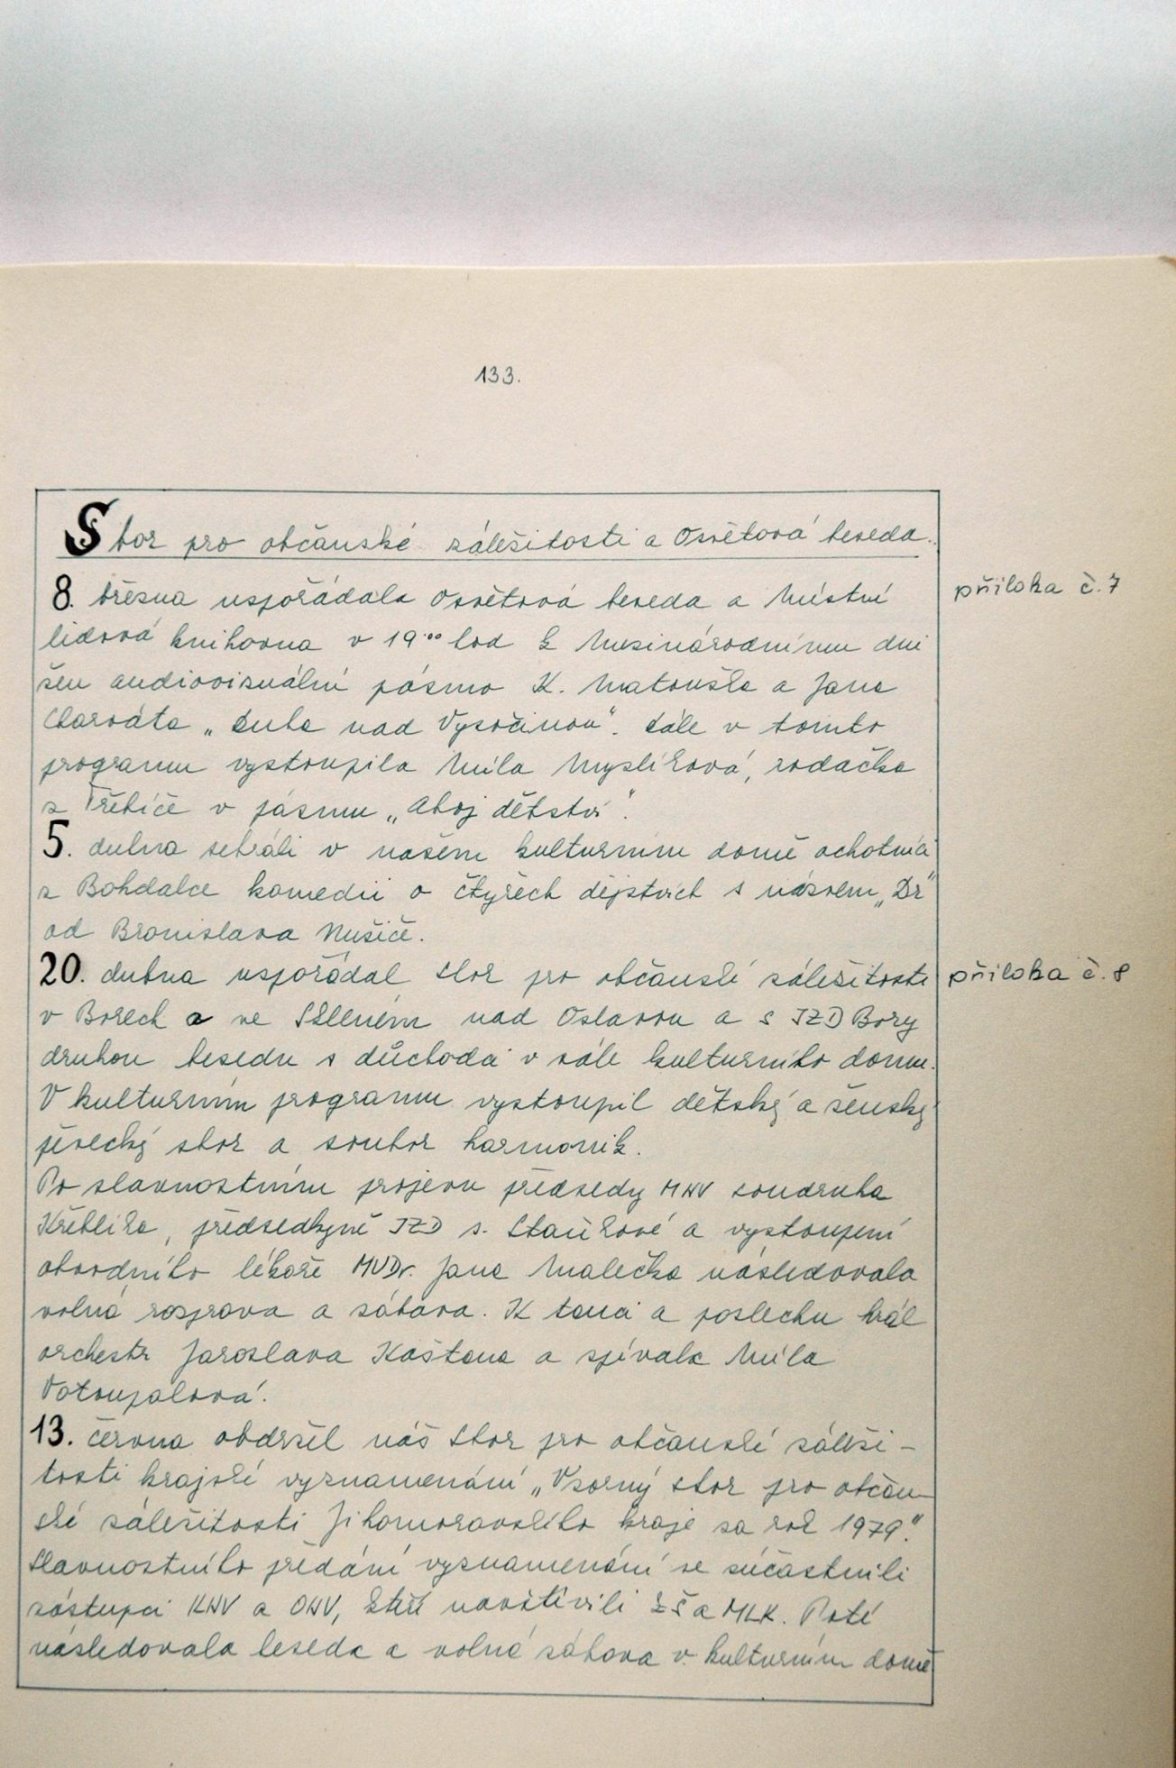 133.
Sbor pro občanské záležitosti a Osvětová beseda.
8. března uspořádala Osvětová beseda a Místní
příloha č. 7
lidová knihovna v 19⁰⁰ hod k Mezinárodnímu dni
žen audiovizuální pásmo K. Matouška a Jana
Charváta „Duha nad Vysočinou". Dále v tomto
programu vystoupila Míla Myslíková, rodačka
z Třebíče v pásmu „Ahoj dětství".
5. dubna sehráli v našem kulturním domě ochotníci
z Bohdalce komedii o čtyřech dějstvích s názvem „Dr"
od Bronislava Nušiče.
20. dubna uspořádal sbor pro občanské záležitosti
příloha č. 8
v Borech a ve Skleném nad Oslavou a s JZD Bory
druhou besedu s důchodci v sále kulturního domu.
V kulturním programu vystoupil dětský a ženský
pěvecký sbor a soubor harmonik.
Po slavnostním projevu předsedy MNV soudruha
Křehlíka, předsedkyně JZD s. Staňkové a vystoupení
obvodního lékaře MUDr. Jana Malečka následovala
volná rozprava a zábava. K tanci a poslechu hrál
orchestr Jaroslava Kaštana a zpívala Míla
Votoupalová.
13. června obdržel náš sbor pro občanské záleži-
tosti krajské vyznamenání „Vzorný sbor pro občan-
ské záležitosti Jihomoravského kraje za rok 1979."
Slavnostního předání vyznamenání se súčastnili
zástupci KNV a ONV, kteří navštívili ZŠ a MLK. Poté
následovala beseda a volná zábava v kulturním domě